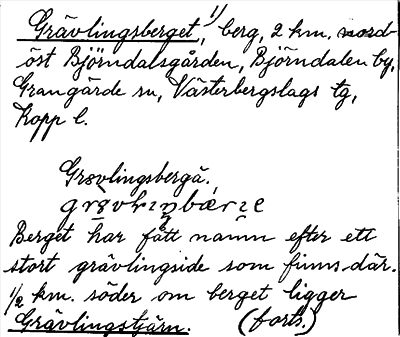 Grävlingsberget, 1) berg, 2 km. nord-
öst Björndalsgården, Björndalen by,
Grangärde sn, Västerbergslags tg,
Kopp l.
Grövlingsbergä.
Berget har fått namn efter ett
stort grävlingside som finns där.
1/2 km. söder om berget ligger
Grävlingstjärn. (forts.)